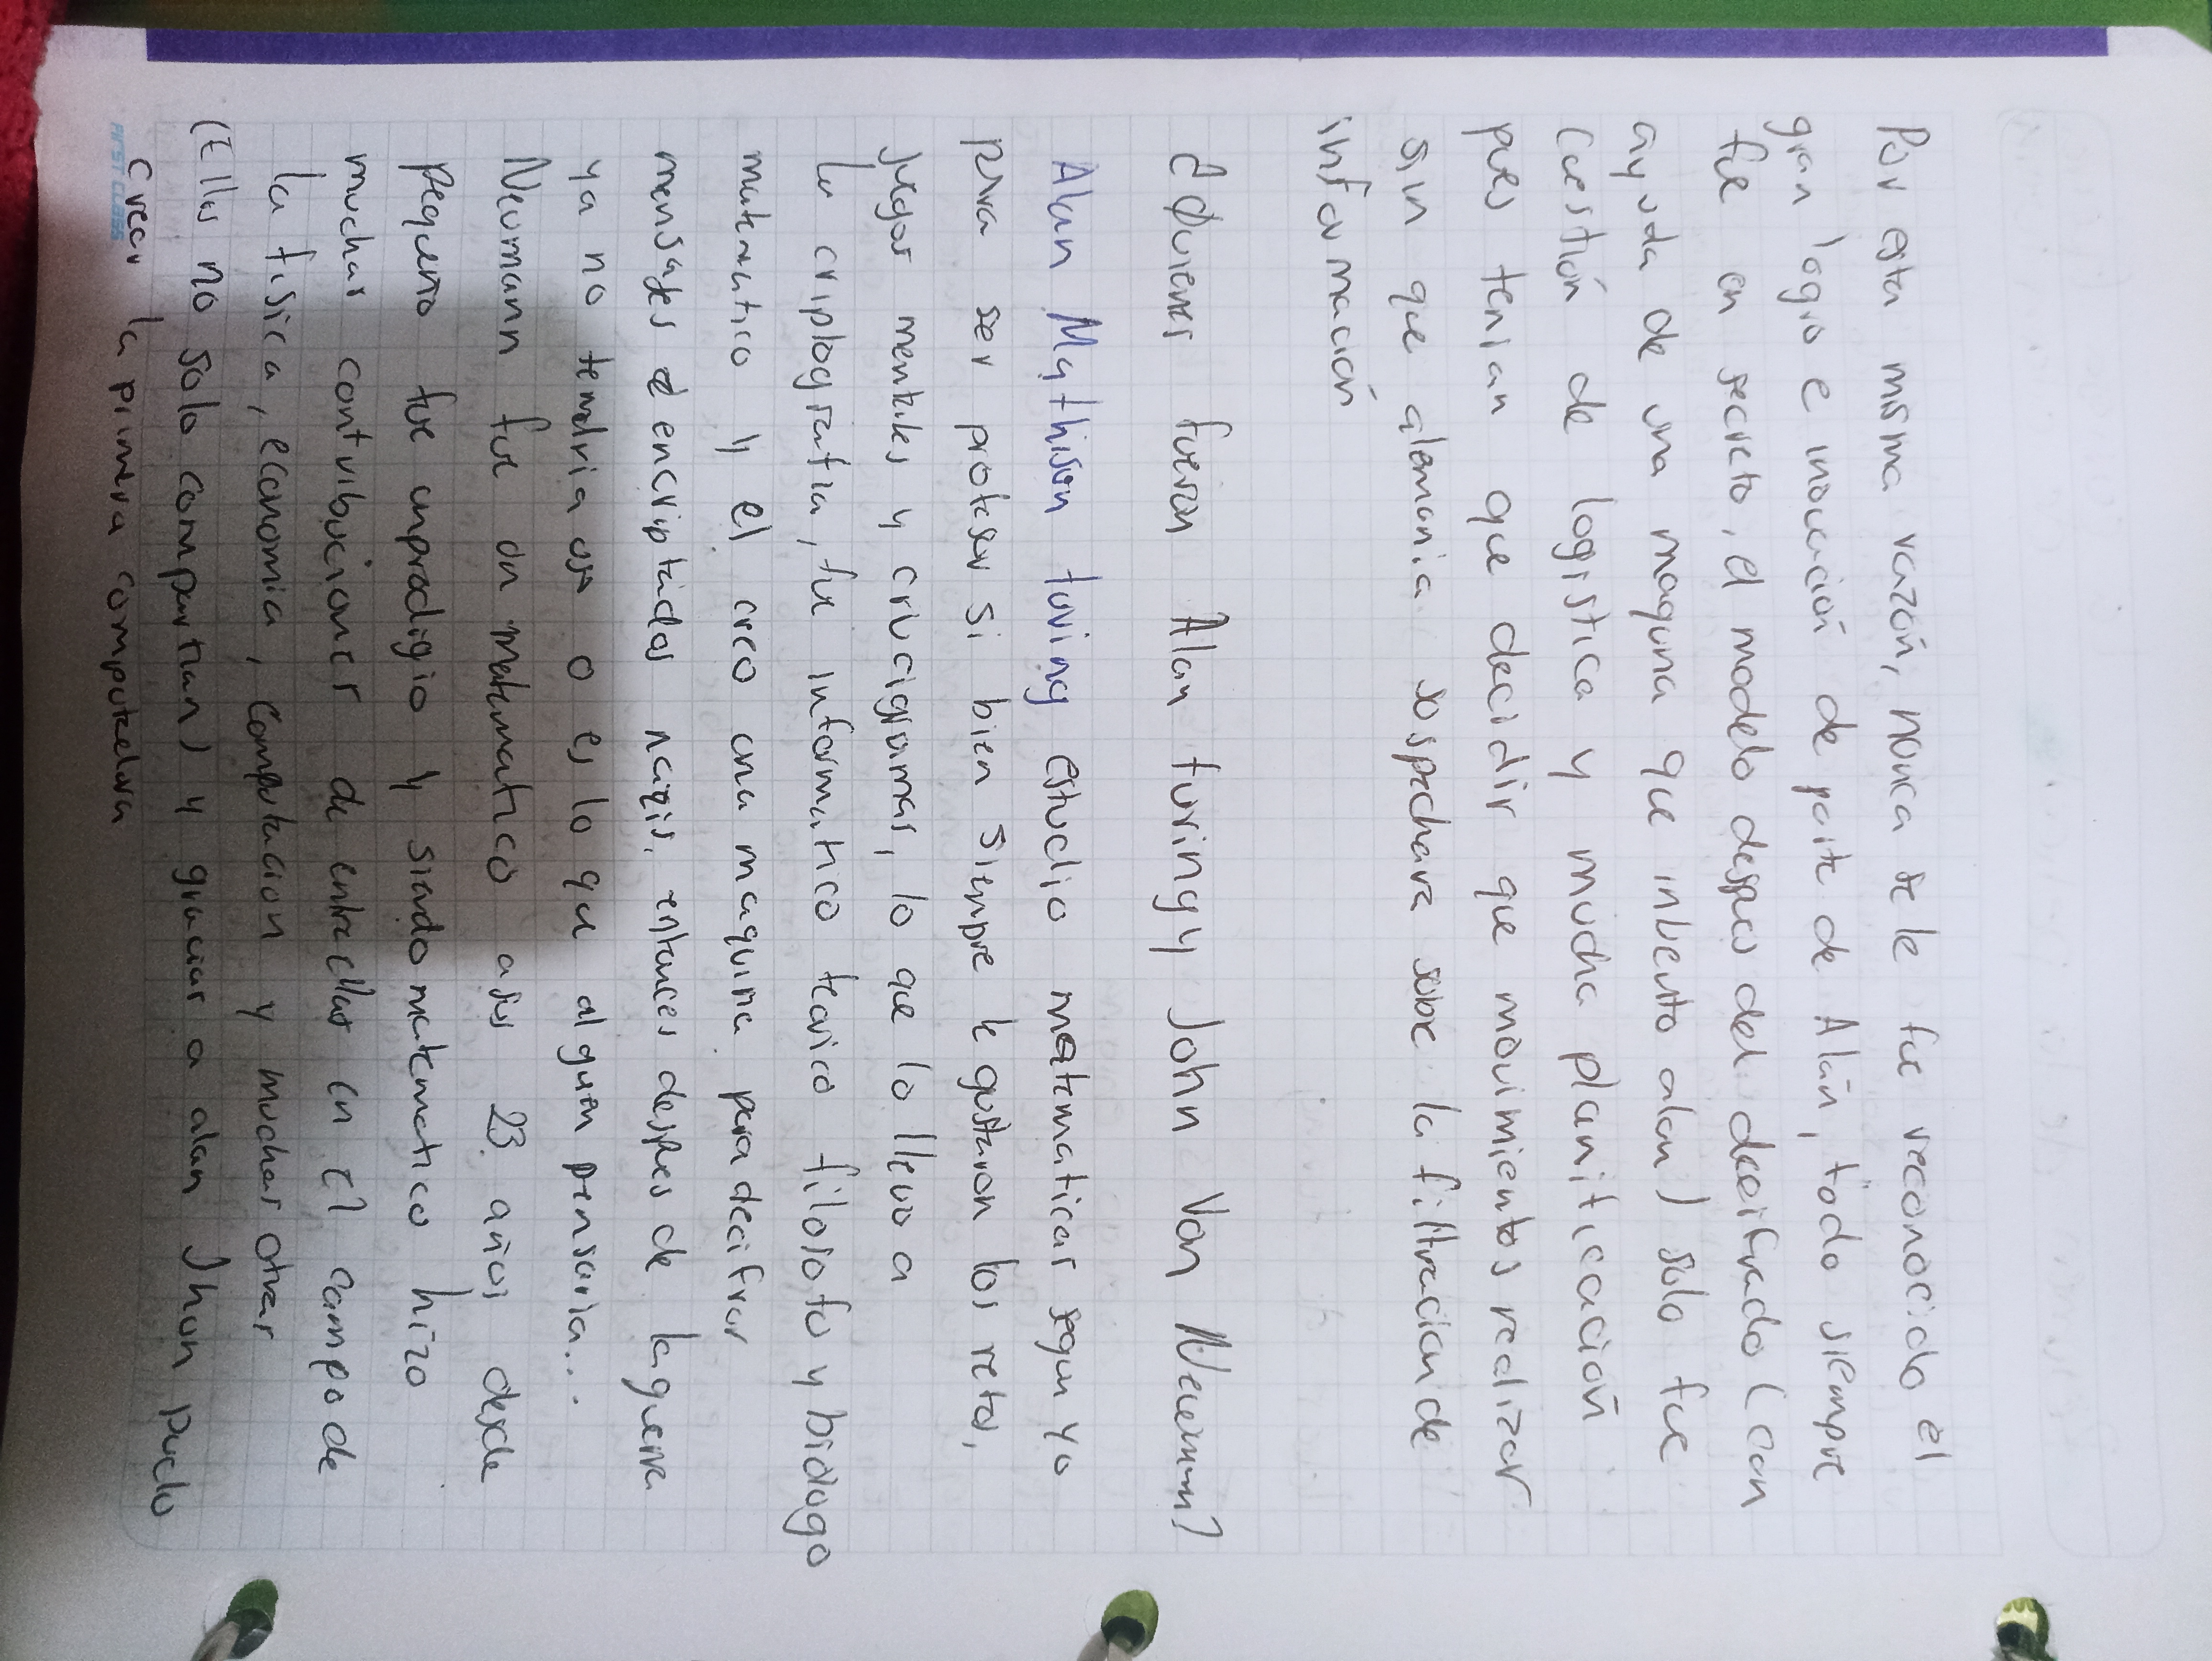 Por esta misma razón, nonca se le fue reconocido el
gran logro e inovación de parte de Alan, todo siempre
fue en secreto, el modelo despues del decifrado (con
ayuda de una maquina que inbento alan) solo fue
cuestión de logistica y mucha planificación
pues tenian que decidir que movimientos realizar
sin que alemania sospechara sobre la filtracion de
información
¿Quienes fueron Alan turing y John Von Neumann?
Alan Mathison turing estudio matematicas segun yo
para ser profesor si bien siempre le gustaron los retos,
juegos mentales y crucigramas, lo que lo llevo a
la criptografia, fue informatico teorico filosofo y biologo
matematico y el creo una maquina para decifrar
mensajes encriptados nazis. entonces despues de la guerra
ya no tendria uso o es lo que alguien pensaria...
Neumann fue un matematico a sus 23 años desde
pequeño fue un prodigio y siendo matematico hizo
muchas contribuciones de entre ellas en el campo de
la fisica, economia, computacion y muchas otras
(Ellos no solo compartian) y gracias a alan Jhon pudo
crear la primera computadora
FIRST CLASS